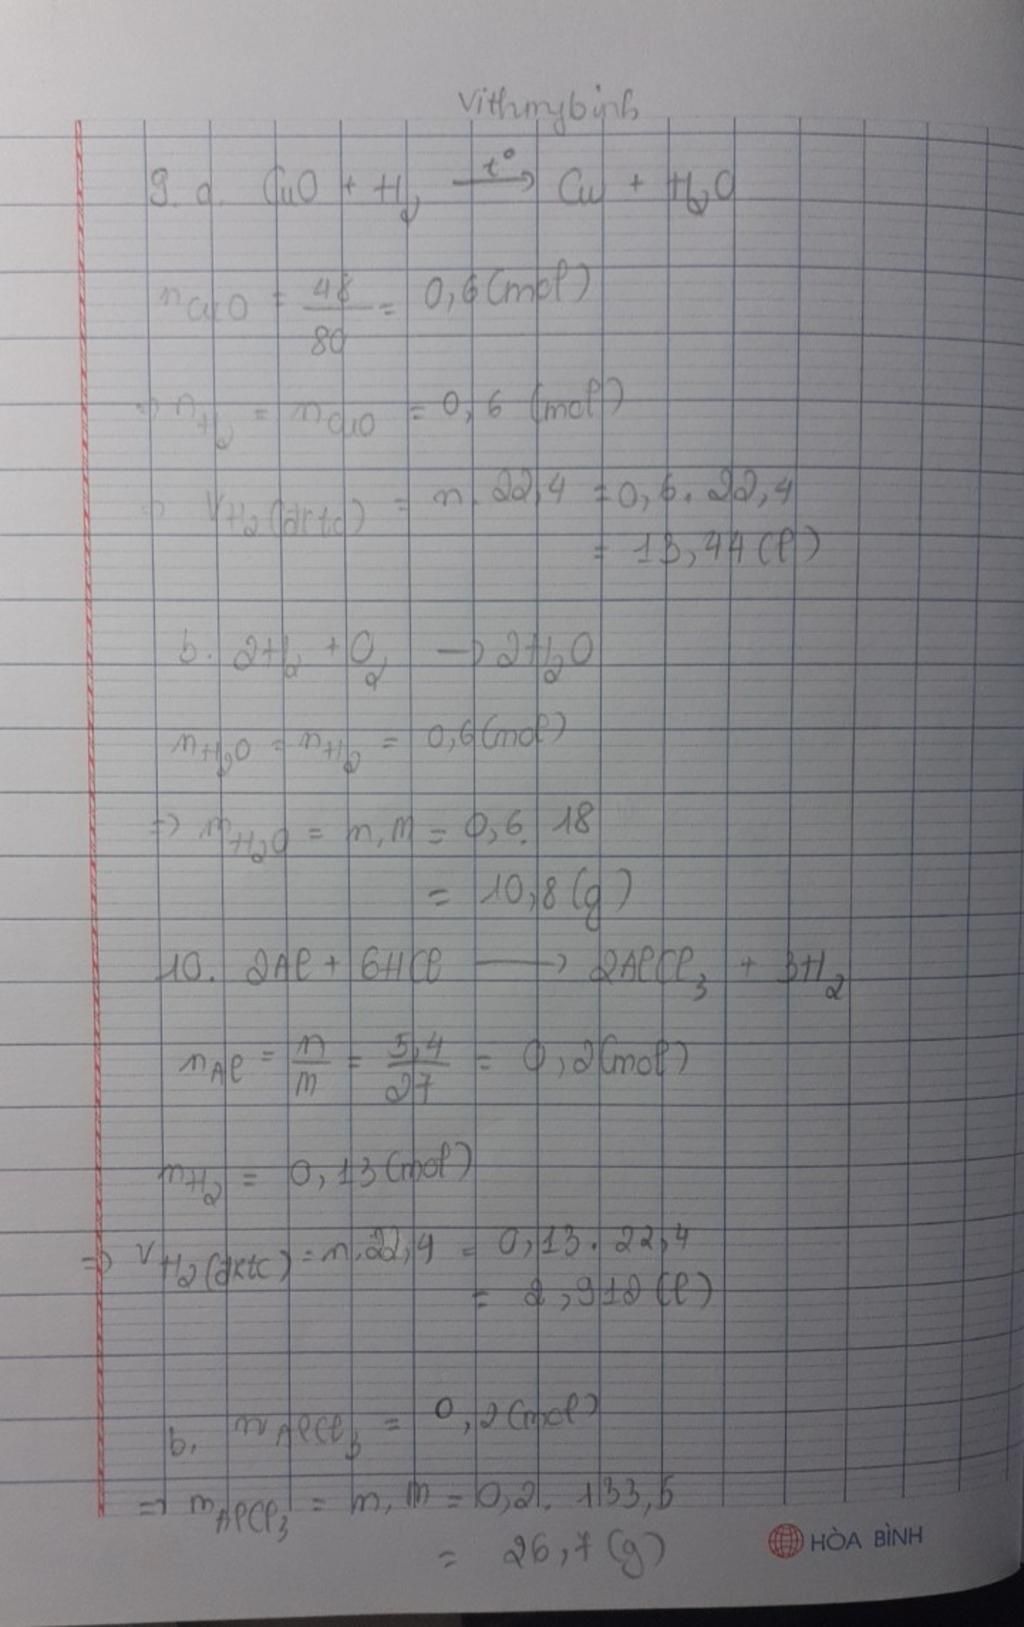 Vithmybinh
9. a. CuO + H2 t°→ Cu + H2O
nCuO = 48/80 = 0,6 (mol)
=> nH2 = nCuO = 0,6 (mol)
=> VH2(đktc) = n.22,4 = 0,6. 22,4
= 13,44 (l)
b. 2H2 + O2 → 2H2O
nH2O = nH2 = 0,6 (mol)
=> mH2O = n.M = 0,6. 18
= 10,8 (g)
10. 2Al + 6HCl → 2AlCl3 + 3H2
nAl = n/m = 5,4/27 = 0,2 (mol)
nH2 = 0,13 (mol)
=> VH2(đktc) = n.22,4 = 0,13. 22,4
= 2,912 (l)
b. nAlCl3 = 0,2 (mol)
=> mAlCl3 = n.M = 0,2. 133,5
= 26,7 (g)
HÒA BÌNH